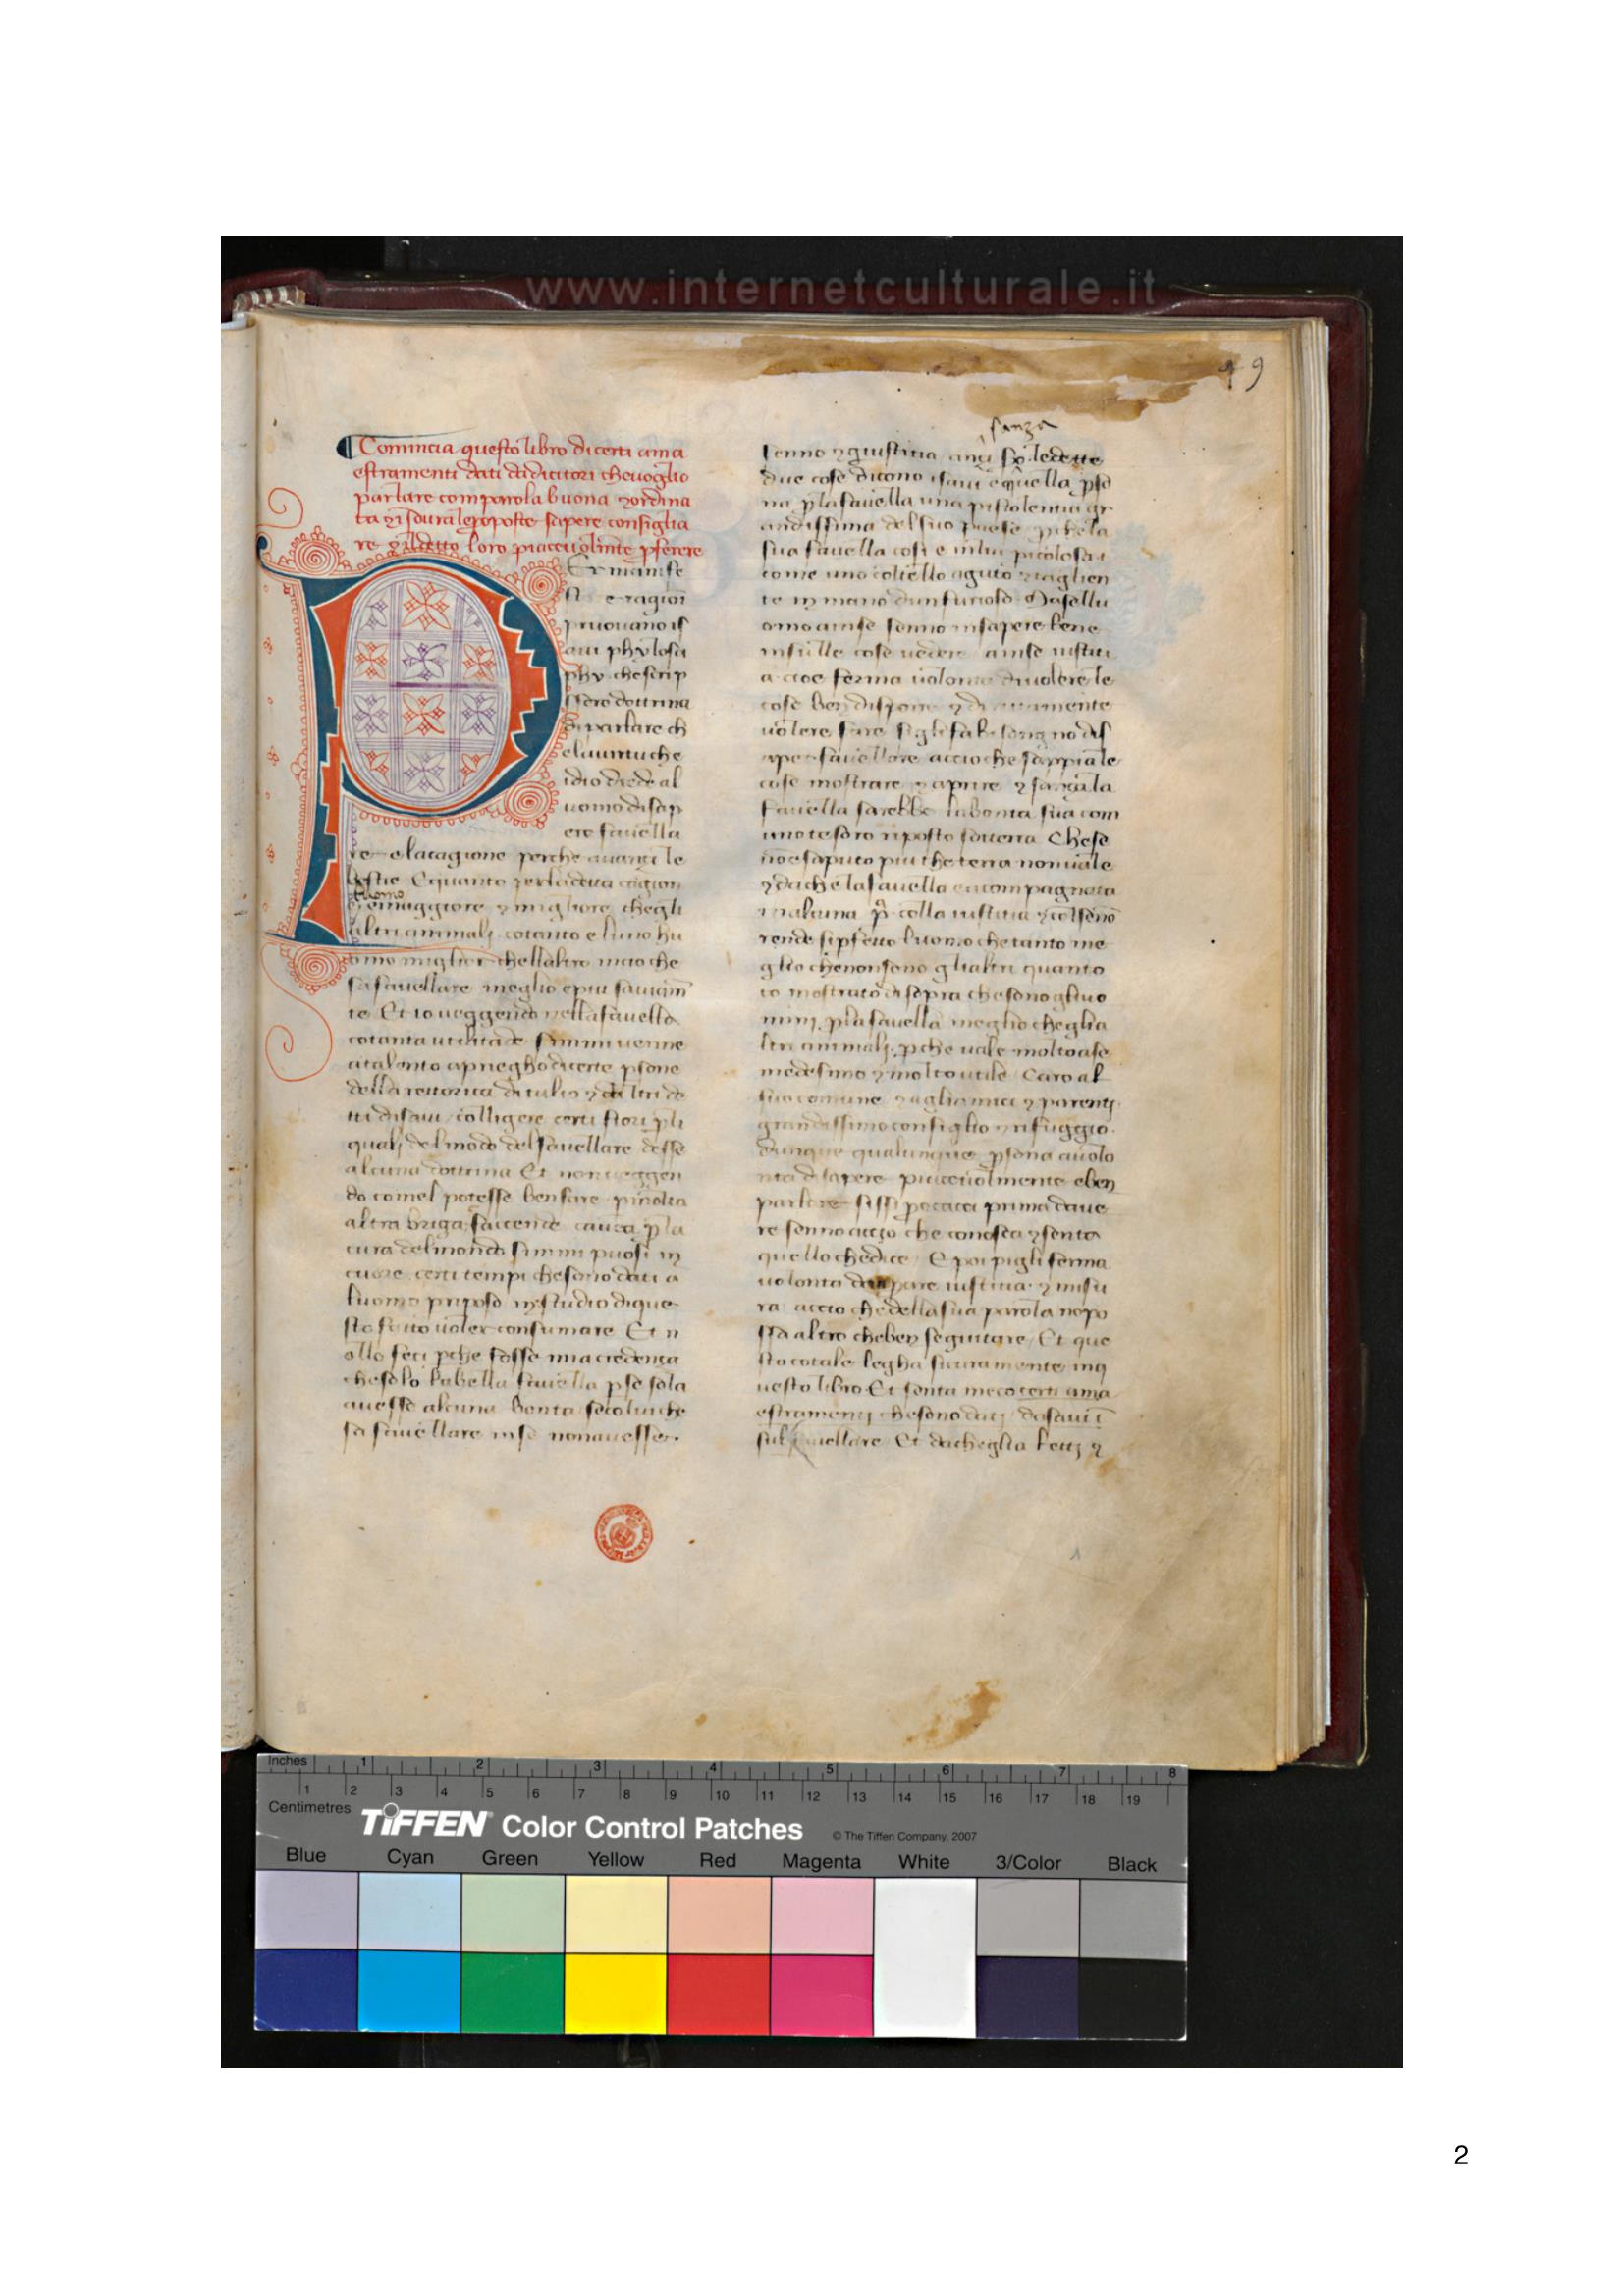 www.internetculturale.it
49
Comincia questo libro di certi ama
estramenti dati da dicitori che voglio
parlare com parola buona ⁊ ordina
ta ⁊ i sdura le proposte sapere consiglia
re ⁊ il detto loro piacevolmēte pferere
Er manife
st e ragioni
pruovano is
aui phylosa
phy che scrip
ssero dottrina
di parlare ch
e laurtu che
idio diede al
uomo di sap
ere fauella
re e la cagione perche auanzi le
bestie E quanto per la detta cagion
luomo
e maggiore ⁊ migliore chegli
altri animalj cotanto e luno hu
omo miglior che llaltro in cio che
sa fauellare meglio e piu sauiam
te Et io ueggendo nella fauella
cotanta utilitade si mmi uenne
a talento a priegho di certe psone
della rettorica di tulio ⁊ di altri de
tti di saui colligere certi fiori p li
qualj del modo del fauellare desse
alcuna dottrina Et non ueggen
do comel potesse ben fare p molta
altra briga faccende cauza p la
cura del mondo si mmi puosi in
cuore certi tempi che sono dati a
luomo p riposo in studio di que
sto fatto uoler consumare Et n
ollo feci pche fosse mia credenza
che solo la bella fauella p se sola
auesse alcuna bonta se colui che
sa fauellare in se non auesse
sanza
senno ⁊ giustitia anzi le dette
due cose dicono i saui e quella pso
na p la fauella una pistolentia gr
andissima del suo paese pche la
sua fauella cosi e in lui picolosa
come uno coltello aguto ⁊ taglien
te in mano dun furioso Ma sellu
omo a in se senno in sapere bene
in se le cose uedere a in se iustiti
a cioe ferma uolonta di uolere le
cose ben disporre ⁊ dirittamente
uolere fare sigli fa bisongno di s
aper fauellare accio che sappia le
cose mostrare ⁊ aprire ⁊ sanza la
fauella sarebbe la bonta sua com
uno tesoro riposto sotterra Che se
no e saputo piu che terra non uale
⁊ da che la fauella e acompagnata
i nalcuna p colla iustitia ⁊ col seno
rende si pfetto luomo che tanto me
glio che non sono gli altri quanto
to mostrato di sopra che sono gli uo
minj p la fauella meglio che gli a
ltri animalj pche uale molto a se
medesimo ⁊ molto utile Caro al
suo comune ⁊ agli amici ⁊ parentj
grandissimo consiglio ⁊ rifuggio
dunque qualunque psona a uolo
nta di sapere piaceuolmente e ben
parlare si ssi procacci prima daue
re senno accio che conosca ⁊ senta
quello che dice E poi pigli ferma
uolonta dusare iustitia ⁊ misu
ra accio che della sua parola no po
ssa altro che ben seguitare Et que
sto cotale legha sicuramente in q
uesto libro Et senta meco certi ama
estramentj che sono datj da saui i
sul fauellare Et da che gli a lettj ⁊
Inches 1 2 3 4 5 6 7 8
1 2 3 4 5 6 7 8 9 10 11 12 13 14 15 16 17 18 19
Centimetres
TIFFEN Color Control Patches © The Tiffen Company, 2007
Blue Cyan Green Yellow Red Magenta White 3/Color Black
2